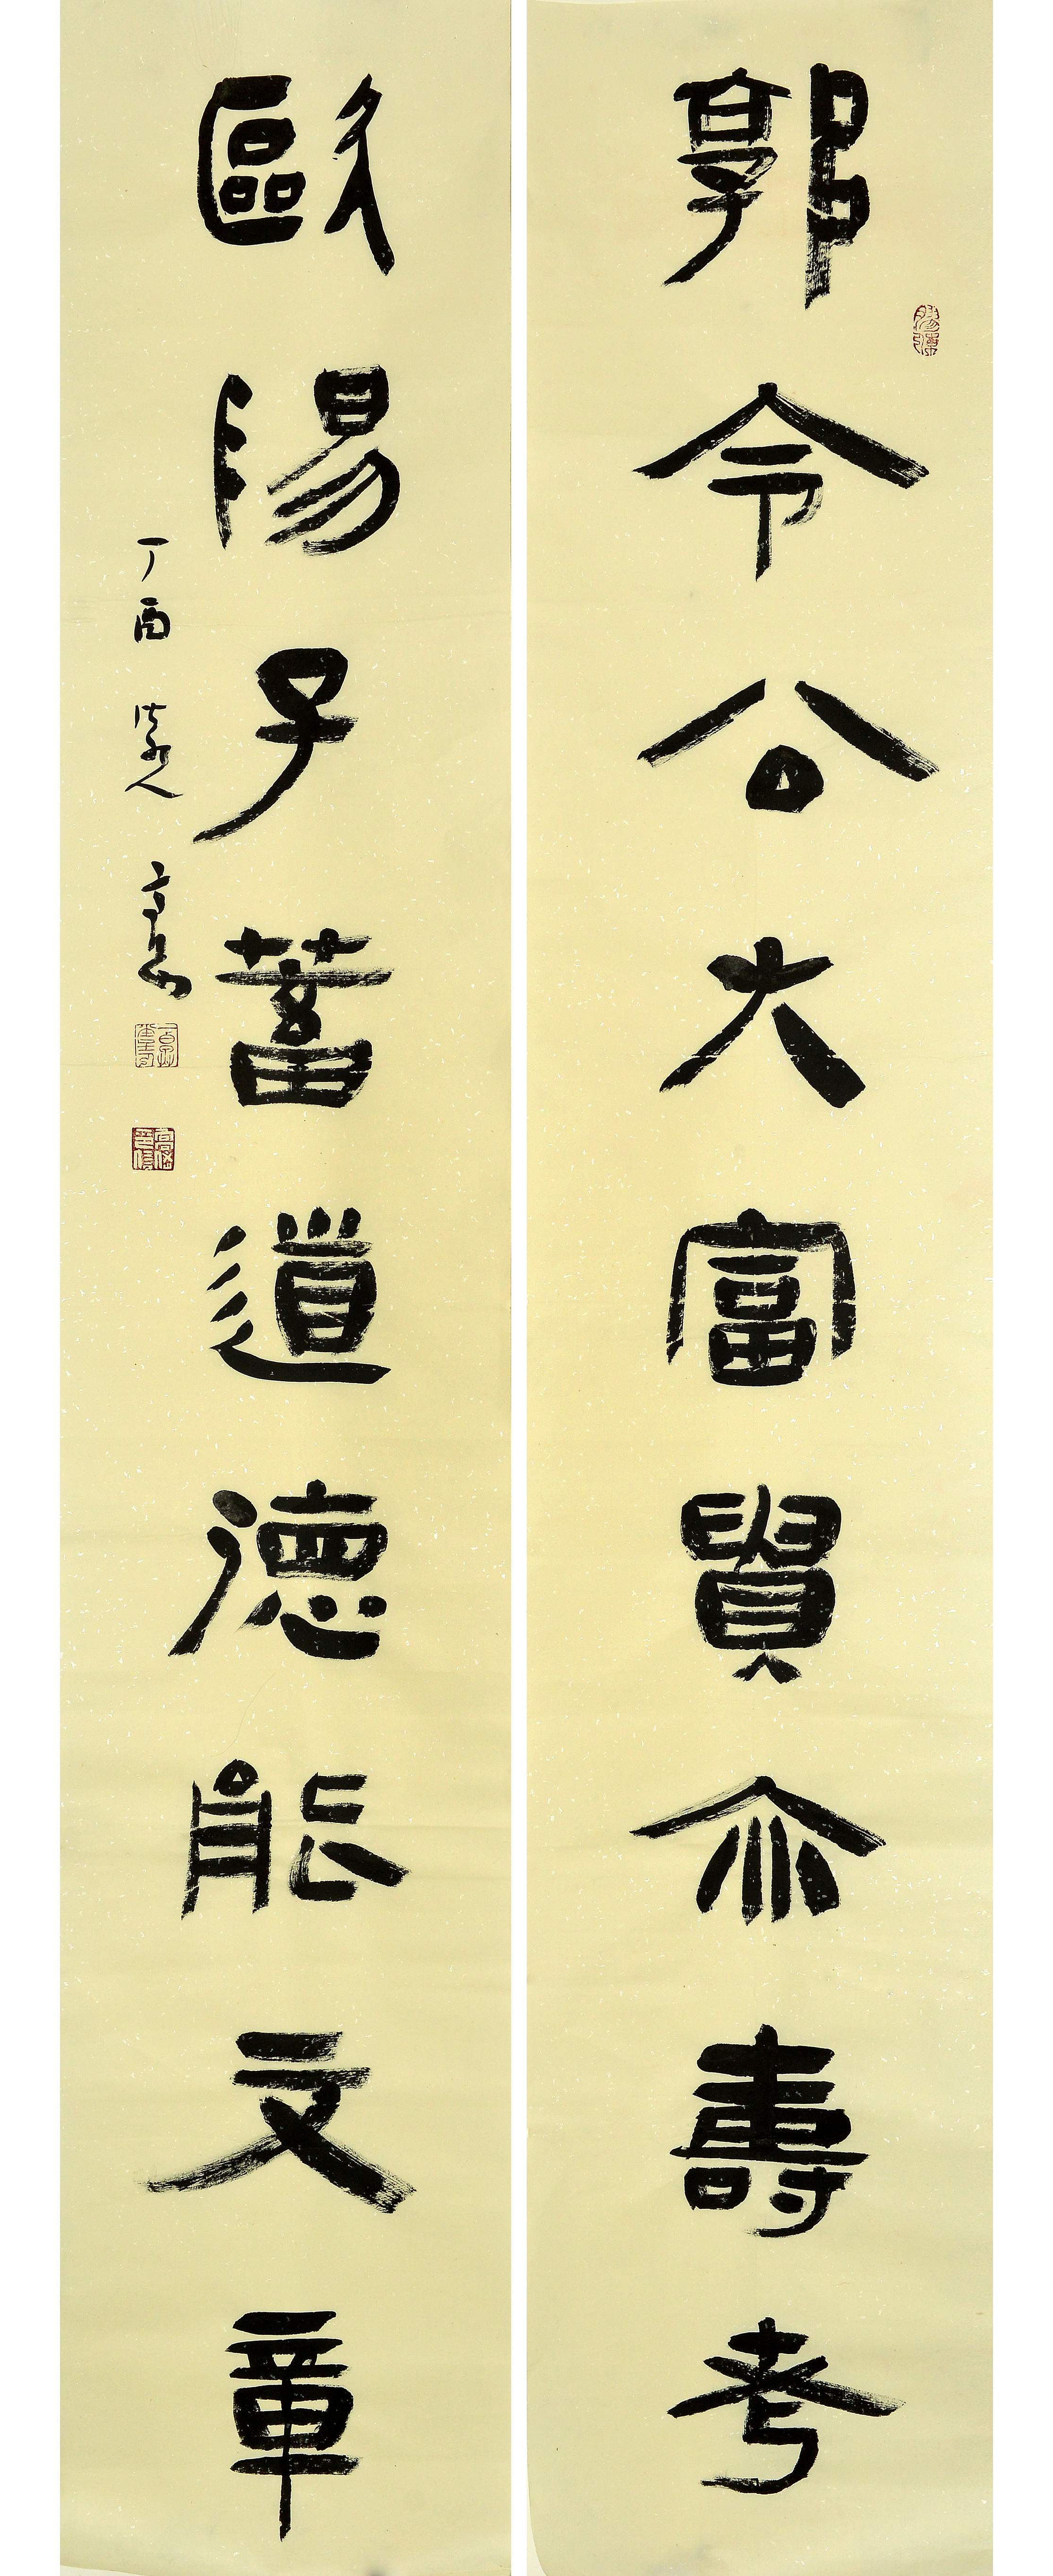 郭令公大富貴亦壽考
歐陽子蓄道德能文章
丁酉